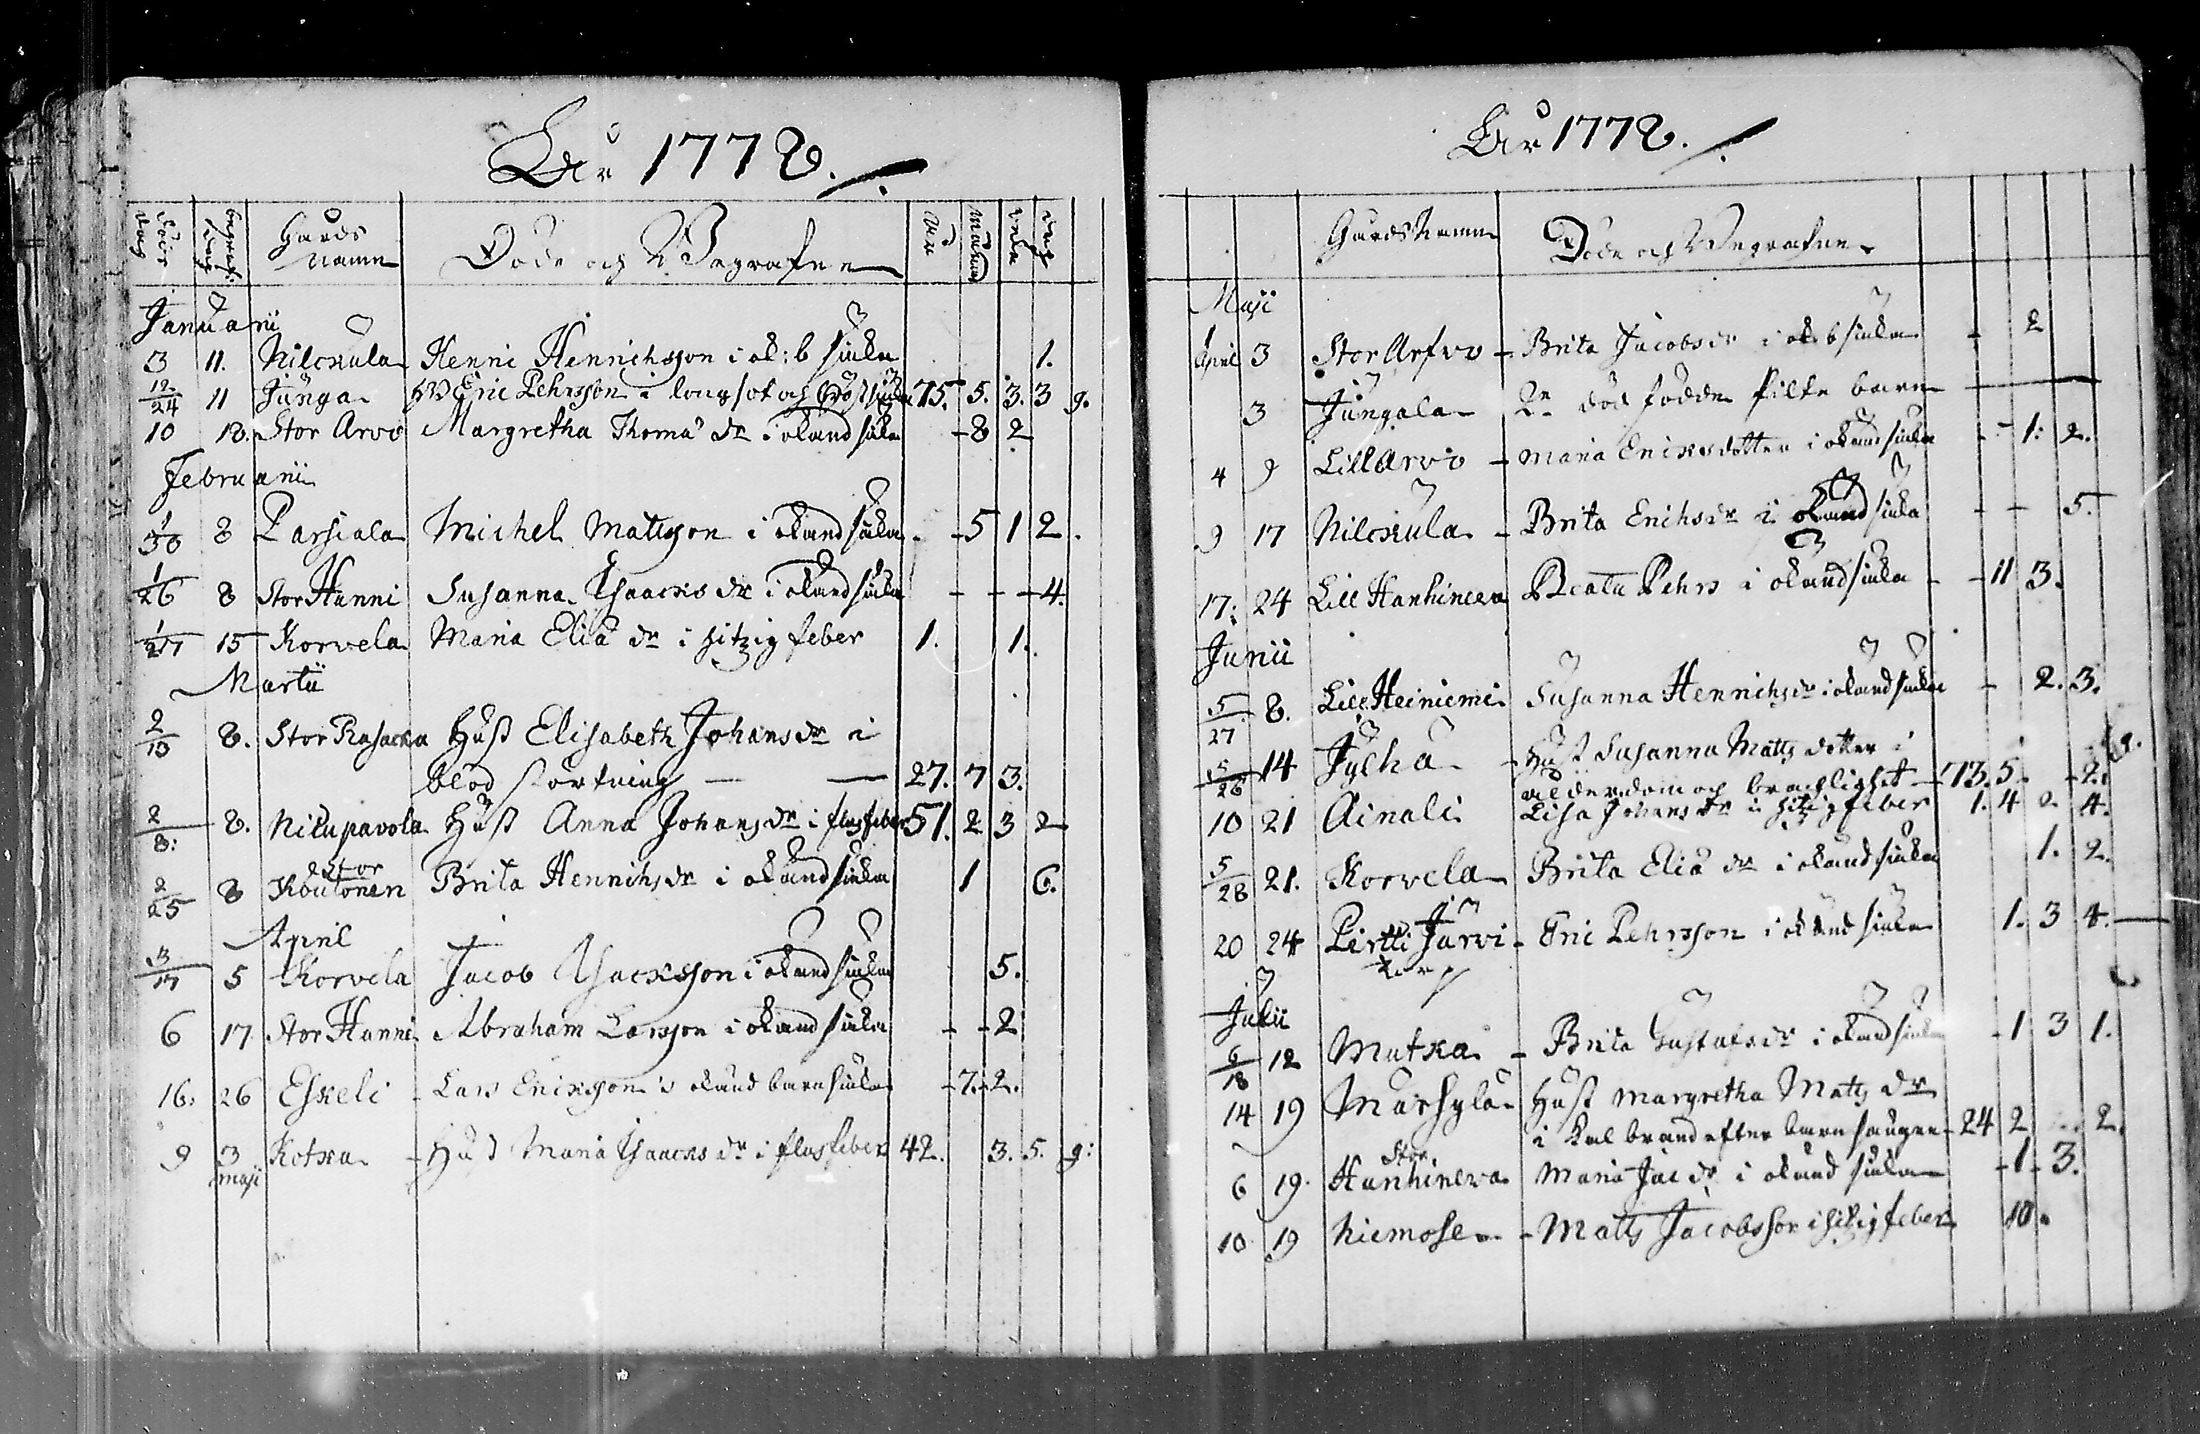 År 1778.
döds dag begrafs: dag Gårds namn Döde och Begrafne år månad vekor dag
Januarii
3 11. Nilckula Henni Henrichsson i ok: b siuka 1.
12/24 11 Junga Eric Pehrsson i lungsot och bröstsiuka 75. 5. 3. 3 g.
10 18. Stor Arvo Margretha Thoma dr i okänd siuka - 8 2
Februarii
1/30 8 Parsiala Michel Mattsson i okänd siuka - 5 1 2.
1/26 8 Stor Hanni Susanna Isaacks dr i okänd siuka - - - 4.
1/27 15 Korvela Maria Elia dr i hitzig feber 1. 1.
Martii
2/10 8. Stor Rasacka Hust Elisabeth Johans dr i
blod störtning — — 27. 7 3.
2/8: 8. Nilupavola Hust Anna Johans dr i flusfeber 51. 2 3 2
stor
2/25 8 Koutonen Brita Henrichs dr i okänd siuka 1 6.
April
3/17 5 Korvela Jacob Isacksson i okänd siuka 5.
6 17 Stor Hanni Abraham Larsson i okänd siuka - - 2
16: 26 Eskeli - Lars Ericksson i okänd barnsiuka - 7. 2.
9 3 Kotka - Hust Maria Isaacks dr i flusfeber 42. 3. 5. g:
maji
År 1778.
Gårds Namn Döde och Begrafne
Maji
April 3 Stor Arfvo - Brita Jacobs dr i ok b siuka - 2
3 Jungala 2ne död födde Pilte barn —
4 9 Lill Arvo - Maria Ericksdotter i okänd siuka - - 1: 2.
9 17 Nilckula - Brita Erichs dr i okänd siuka - - 5.
17: 24 Lill Hanhineva Beata Pehrs i okänd siuka - - 11 3.
Junii
5/27 8. Lill Heiniemi Susanna Henrichs dr i okänd siuka - 2. 3.
5/26 14 Jylhä - Hust Susanna Matts dotter i
ålderdom och bräcklighet - 73. 5. - 2. g.
10 21 Ainali Lisa Johans dr i hitzig feber 1. 4 2. 4.
5/28 21. Korvela Brita Elia dr i okänd siuka 1. 2.
20 24 Pirtti Järvi - Eric Pehrsson i okänd siuka 1. 3 4. —
torp
Julii
6/18 12 Matka - Brita Gustafs dr i okänd siuka - 1 3 1.
14 19 Marsylä - Hust Margretha Matts dr
i kalbrand efter barnsängen - 24 2 2.
Stor
6 19. Hanhineva Maria Jac dr i okänd siuka - 1 - 3.
10 19 Niemose - Matts Jacobsson i hitzig feber 10.